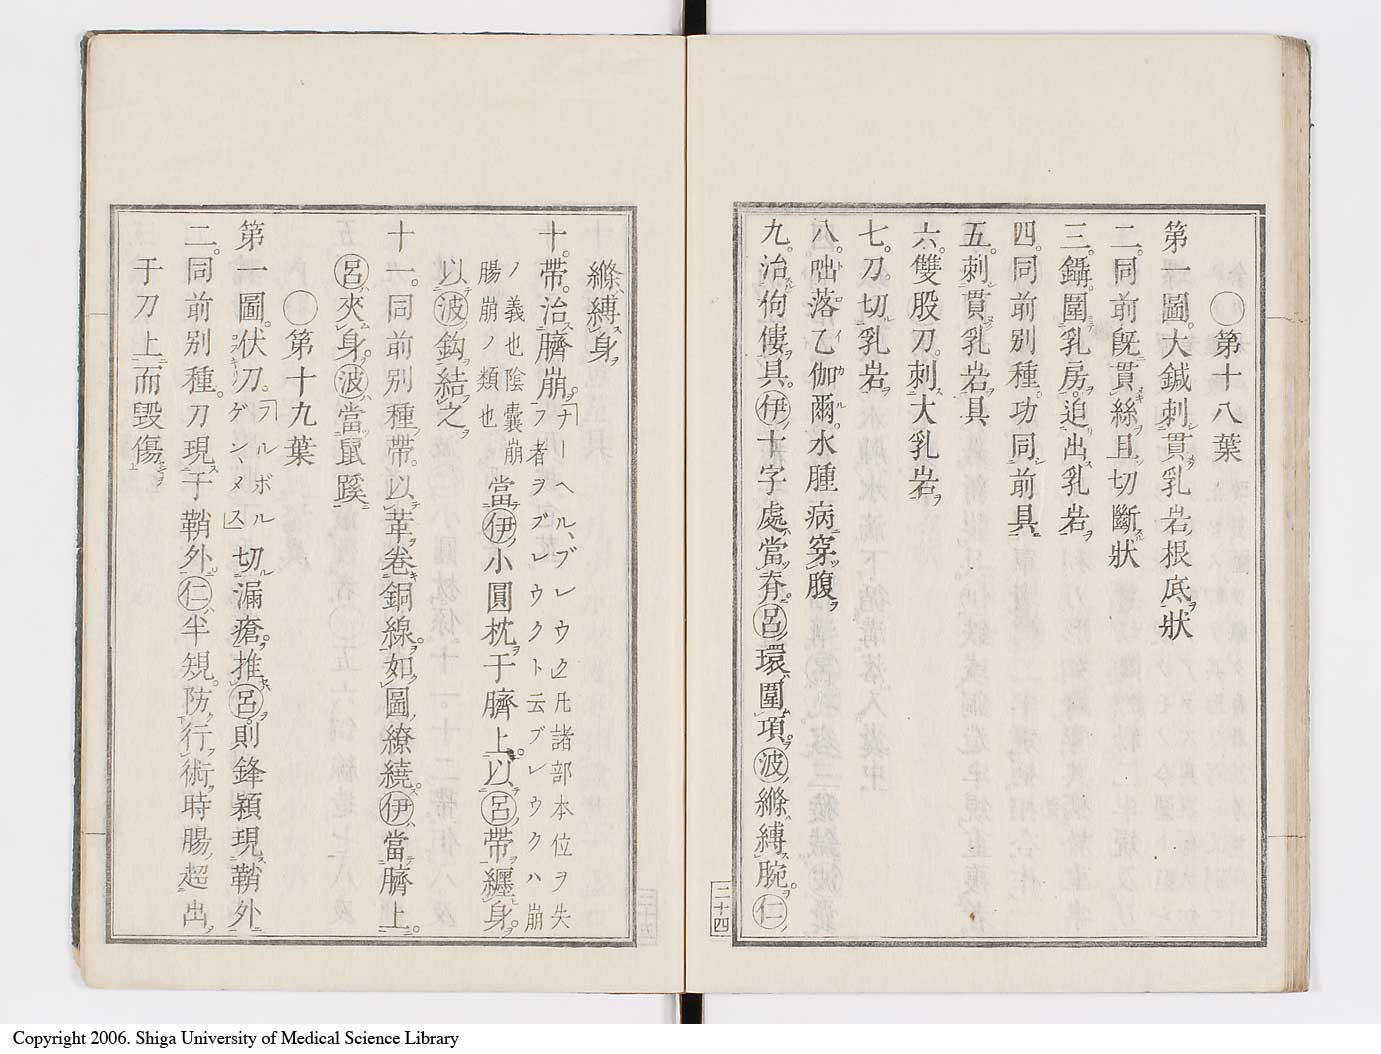 ◯第十八葉
第一圖。大鍼刺貫乳岩根底狀
二。同前旣貫絲且切斷狀
三。鑷。圍乳房。迫出乳岩
四。同前別種。功同前具
五。刺貫乳岩具
六。雙股刀。刺大乳岩
七。刀。切乳岩
八。咄落乙伽爾。水腫病穿腹
九。治佝僂具。㊀伊十字處當脊。呂環圍項。波縧縛腕。仁
縧縛身
十。帶。治臍崩。「ナーヘル、ブレウク」凡諸部本位ヲ失フ者ヲブレウクト云ブレウクハ崩ノ義也陰囊崩腸崩ノ類也 當伊小圓枕于臍上。以呂帶纏身。
以波鈎結之
十一。同前別種帶。以革卷銅線。如圖繚繞。伊當臍上。
呂夾身。波當鼠蹊
◯第十九葉
第一圖。伏刀。「フルボルゲン、メス」 切漏瘡。推呂。則鋒穎現鞘外
二。同前別種。刀現于鞘外。仁半規。防行術時腸超出
于刀上而毀傷
二十四
Copyright 2006. Shiga University of Medical Science Library